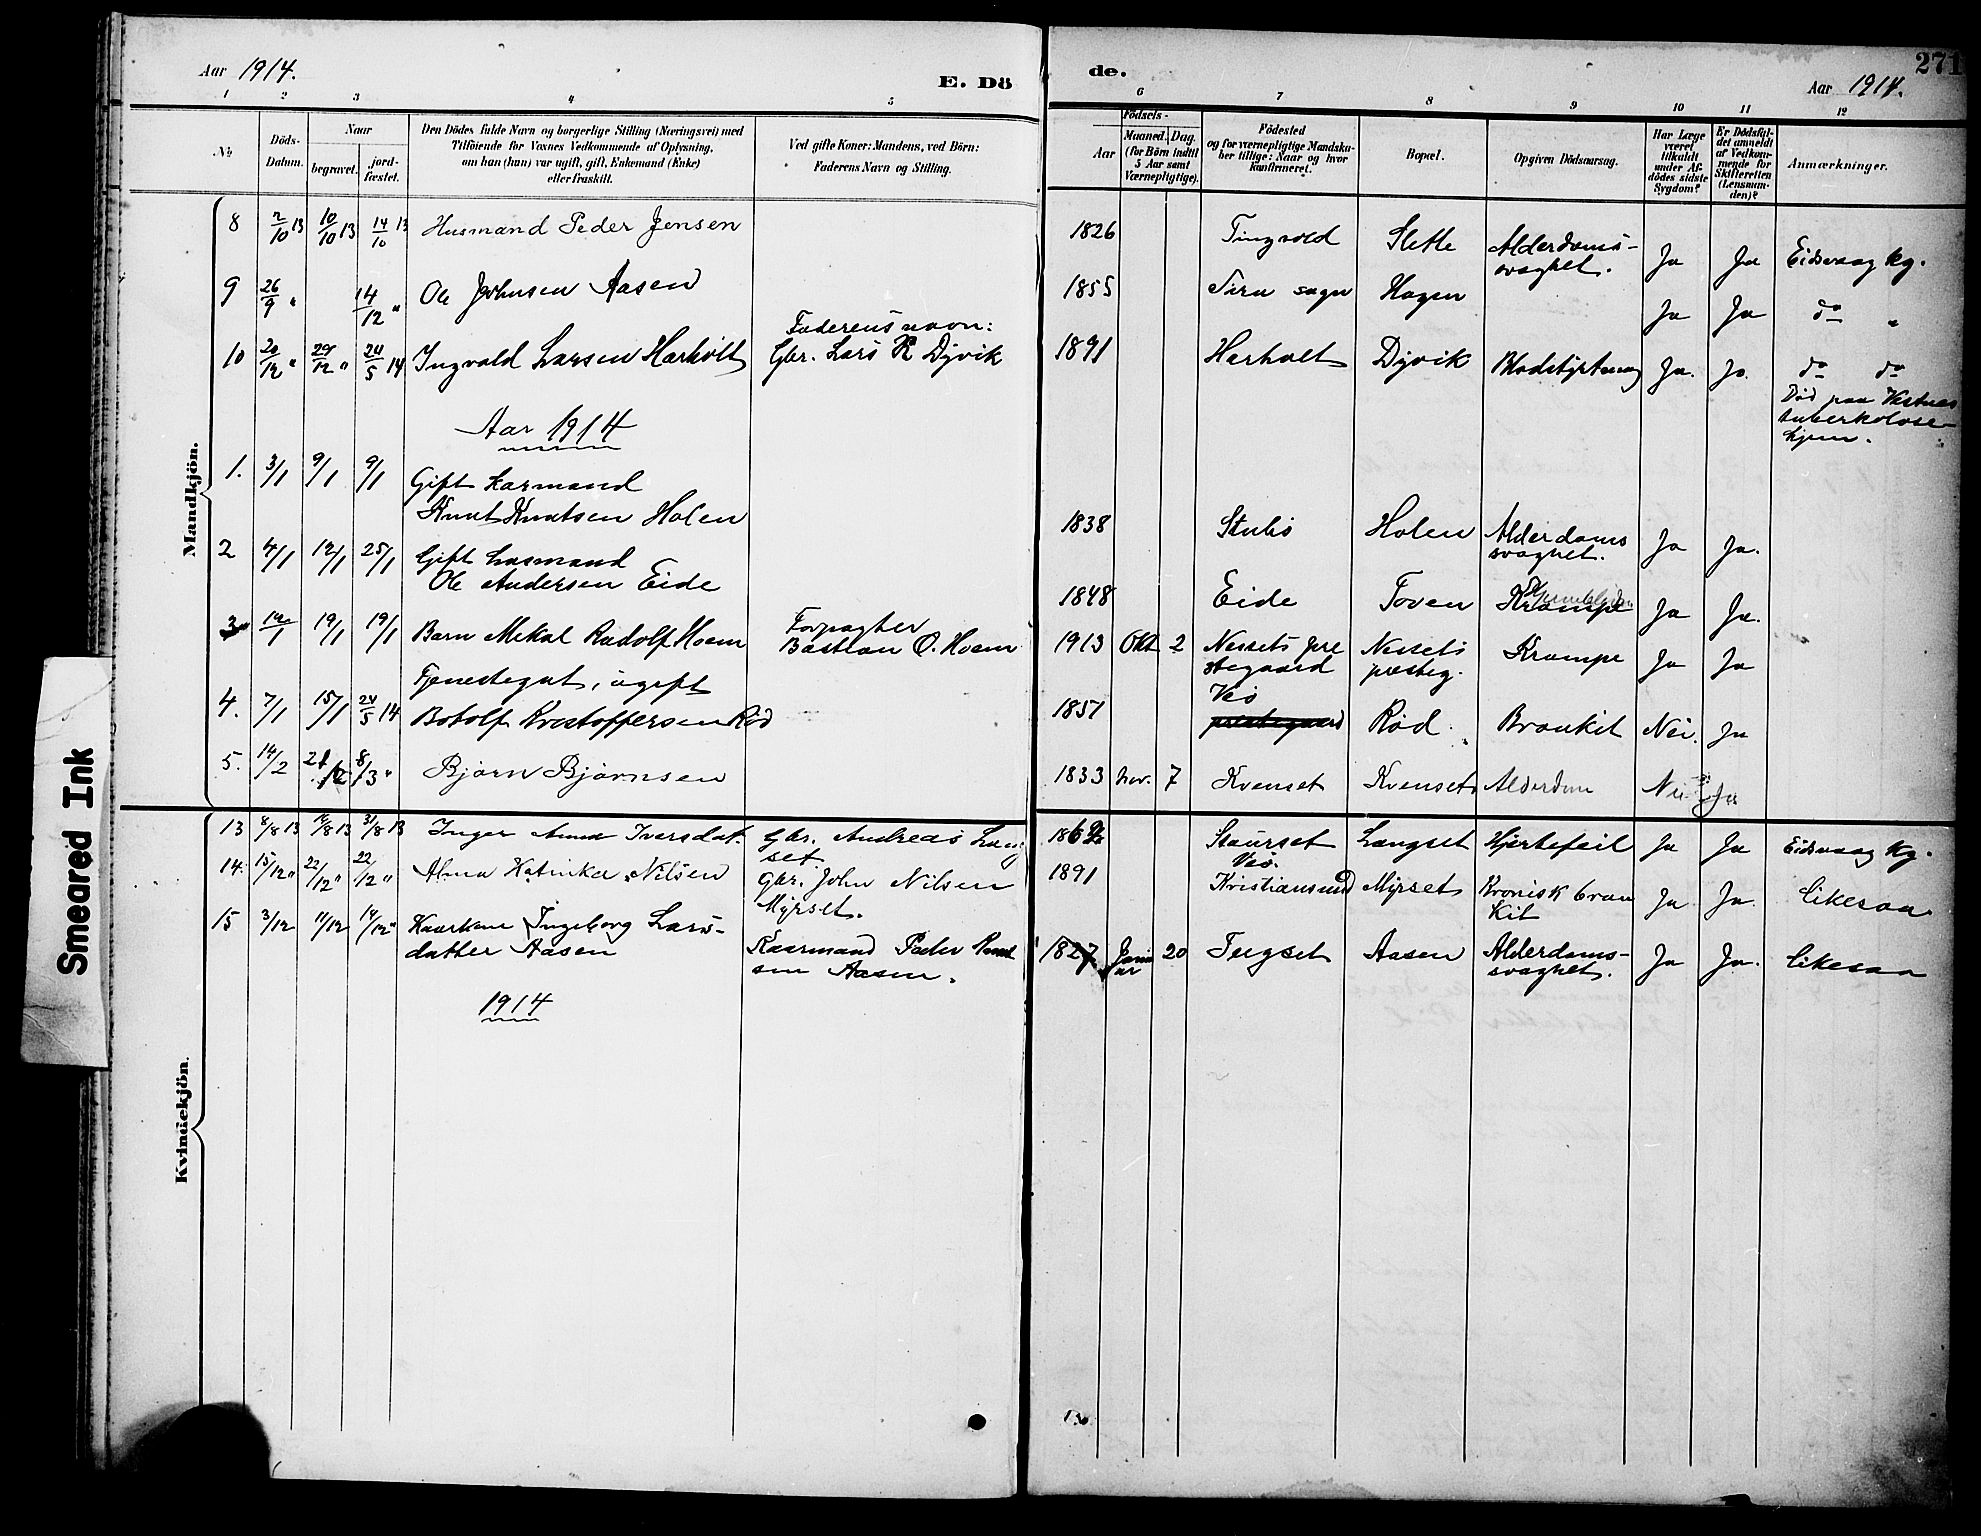 Aar 1914.
E. Dö
de.
Aar 1914.
271
1 2 3 4 5 6 7 8 9 10 11 12
No
Döds-
Datum.
Naar
begravet.
jord-
fæstet.
Den Dödes fulde Navn og borgerlige Stilling (Næringsvei) med
Tilföiende for Voxnes Vedkommende af Oplysning,
om han (hun) var ugift, gift, Enkemand (Enke)
eller fraskilt.
Ved gifte Koner: Mandens, ved Börn:
Faderens Navn og Stilling.
Födsels-
Aar
Maaned. Dag.
(for Börn indtil
5 Aar samt
Værnepligtige).
Födested
og for værnepligtige Mandska-
ber tillige: Naar og hvor
konfirmeret.
Bopæl.
Opgiven Dödsaarsag.
Har Læge
været
tilkaldt
under Af-
dödes sidste
Sygdom?
Er Dödsfal-
det anmeldt
af Vedkom-
mende for
Skifteretten
(Lensman-
den)?
Anmærkninger.
Mandkjön.
8 2/10 13 10/10 13 14/10 13 Husmand Peder Jensen 1826 Tingvold Slette Alderdoms-
svaghet. Ja Ja Eidsvaag kg.
9 26/9 " 14/12 " Ole Johnsen Aasen 1855 Tiru sogn Hagen Ja Ja do "
Faderens navn:
10 20/12 " 29/12 " 24/5 14 Ingvald Larsen Harholt Gbr. Lars R Dyvik 1891 Harholt Dyvik Blodstyrtning Ja. Ja. do do
Död paa Vestnes
tuberkolose-
hjem.
Aar 1914
1. 3/1 9/1 9/1 Gift karmand
Knut Knutsen Holen 1838 Stubö Holen Alderdoms
svaghet. Ja Ja.
2 4/1 12/1 25/1 Gift husmand
Ole Andersen Eide 1848 Eide Toven Krampe Ja Ja.
3 12/1 19/1 19/1 Barn Mikal Rudolf Hoem Forpagter
Bastian O. Hoem 1913 Okt 2 Nessets pre
stegaard Nessets
presteg. Krampe Ja Ja
Tjenestegut, ugift
4. 7/1 15/1 24/5 14 Botolf Kristoffersen Röd 1851 Veö
prestegaard Röd Bronkit Nei. Ja
5. 14/2 21/2 8/3 " Björn Björnsen 1833 Nov. 7 Kvenset Kvenset Alderdom Nei Ja
Kvindekjön.
13 8/8 13 14/8 13 31/8 13 Inger Anna Iversdat. Gbr. Andreas Lang
set 1862 Staurset
Veö. Langset Hjertefeil Ja Ja Eidsvaag kg.
14. 15/12 " 22/12 " 22/12 " Alma Katinka Nilsen Gbr. John Nilsen
Myrset. 1891 Kristiansund Myrset Kronisk bron
kit Ja Ja. likesaa
15 3/12 11/12 14/12 " Kaarkone Ingeborg Lars-
datter Aasen Kaarmand Peder Knut
sen Aasen. 1827 Janu
ar 20 Tugset Aasen Alderdoms-
svaghet. Ja Ja. likesaa
1914
Smeared Ink